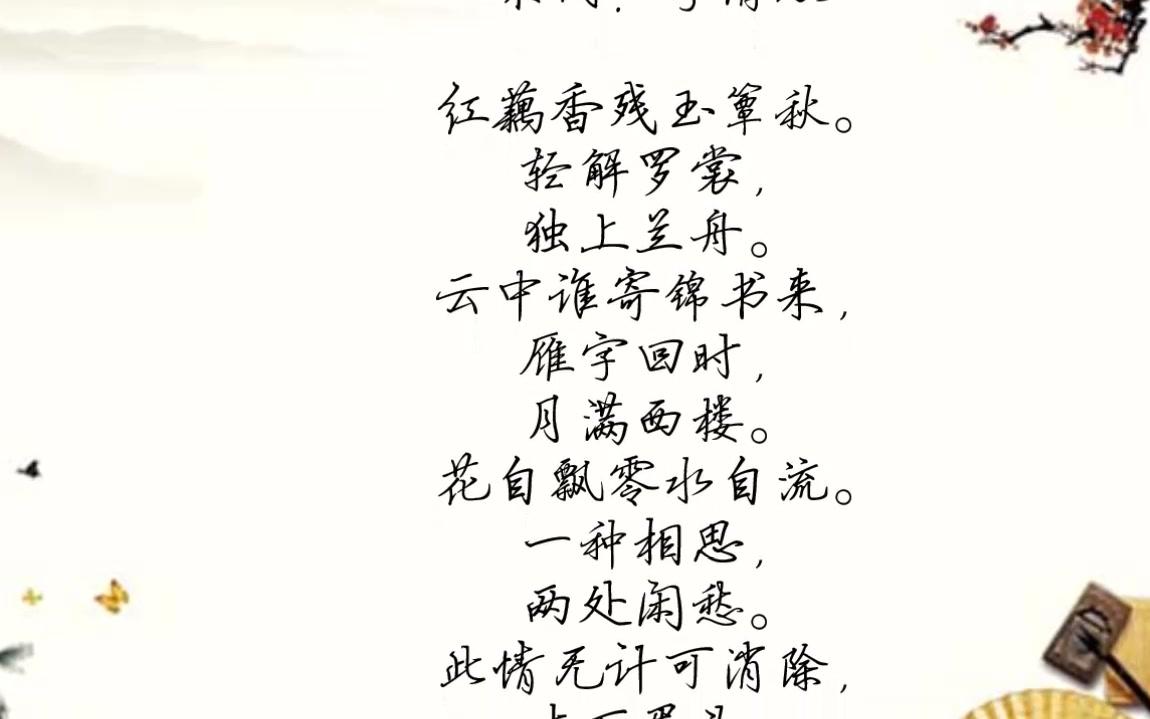 红藕香残玉簟秋。
轻解罗裳，
独上兰舟。
云中谁寄锦书来，
雁字回时，
月满西楼。
花自飘零水自流。
一种相思，
两处闲愁。
此情无计可消除，